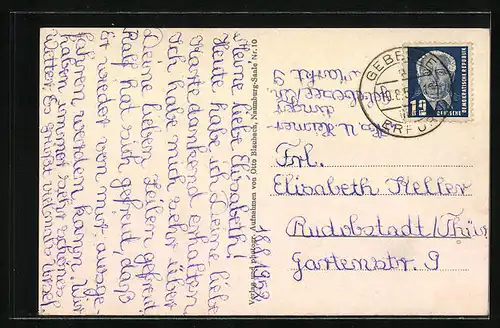 18.8.1952
Meine liebe Elisabeth!
Heute habe ich Deine liebe
Karte dankend erhalten
Ich habe mich sehr über
Deine lieben Zeilen gefreut
Ralf hat sich gefreut, daß
Er wieder von mir ausge-
fahren worden kann. Wir
haben immer sehr schönes
Wetter. Es grüßt vielmals Ursel.
Verlag und photogr. Aufnahmen von Otto Blaubach, Naumburg-Saale Nr. 10
Markt 9
GEBE
ERFU
12
DEUTSCHE
DEMOKRATISCHE REPUBLIK
Frl.
Elisabeth Keller
Rudolstadt/Thür
Gartenstr. 9